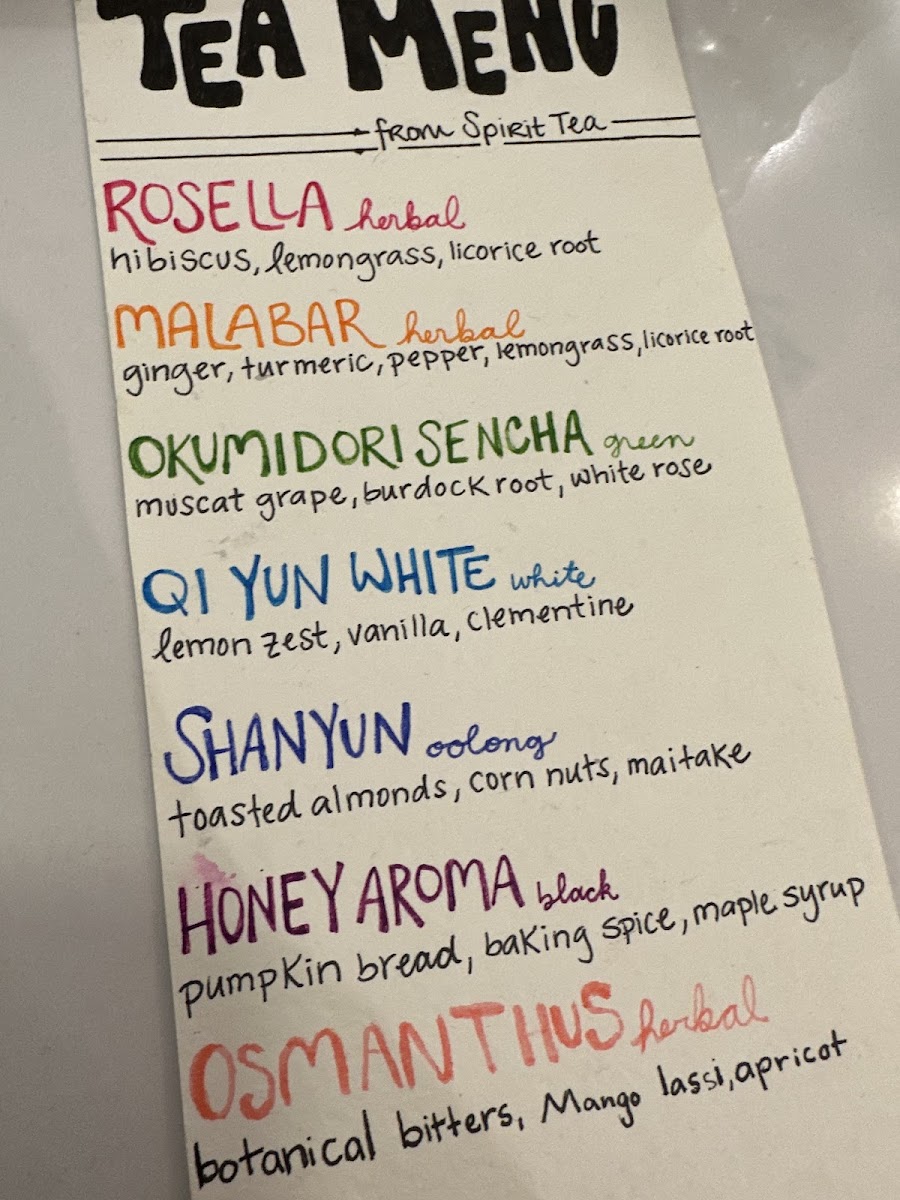 TEA MENU
from Spirit Tea
ROSELLA herbal
hibiscus, lemongrass, licorice root
MALABAR herbal
ginger, turmeric, pepper, lemongrass, licorice root
OKUMIDORI SENCHA green
muscat grape, burdock root, white rose
QI YUN WHITE white
lemon zest, vanilla, clementine
SHANYUN oolong
toasted almonds, corn nuts, maitake
HONEY AROMA black
pumpkin bread, baking spice, maple syrup
OSMANTHUS herbal
botanical bitters, Mango lassi, apricot